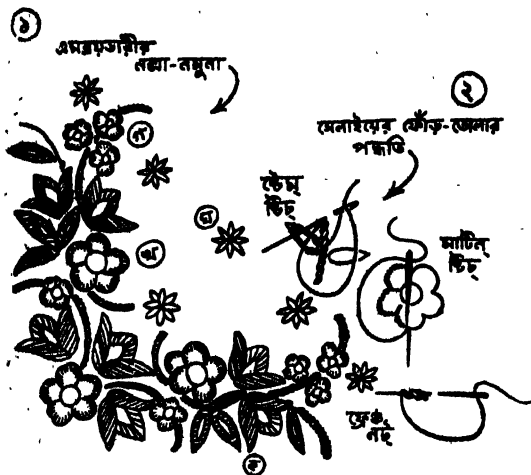 ১
এমব্রয়ডারীর
নক্সা-নমুনা
২
সেলাইয়ের ফোঁড়-তোলার
পদ্ধতি
ষ্টেম্
ষ্টিচ্
সাটিন্
ষ্টিচ্
ফ্রেঞ্চ্
নট্
গ
ঘ
খ
ক